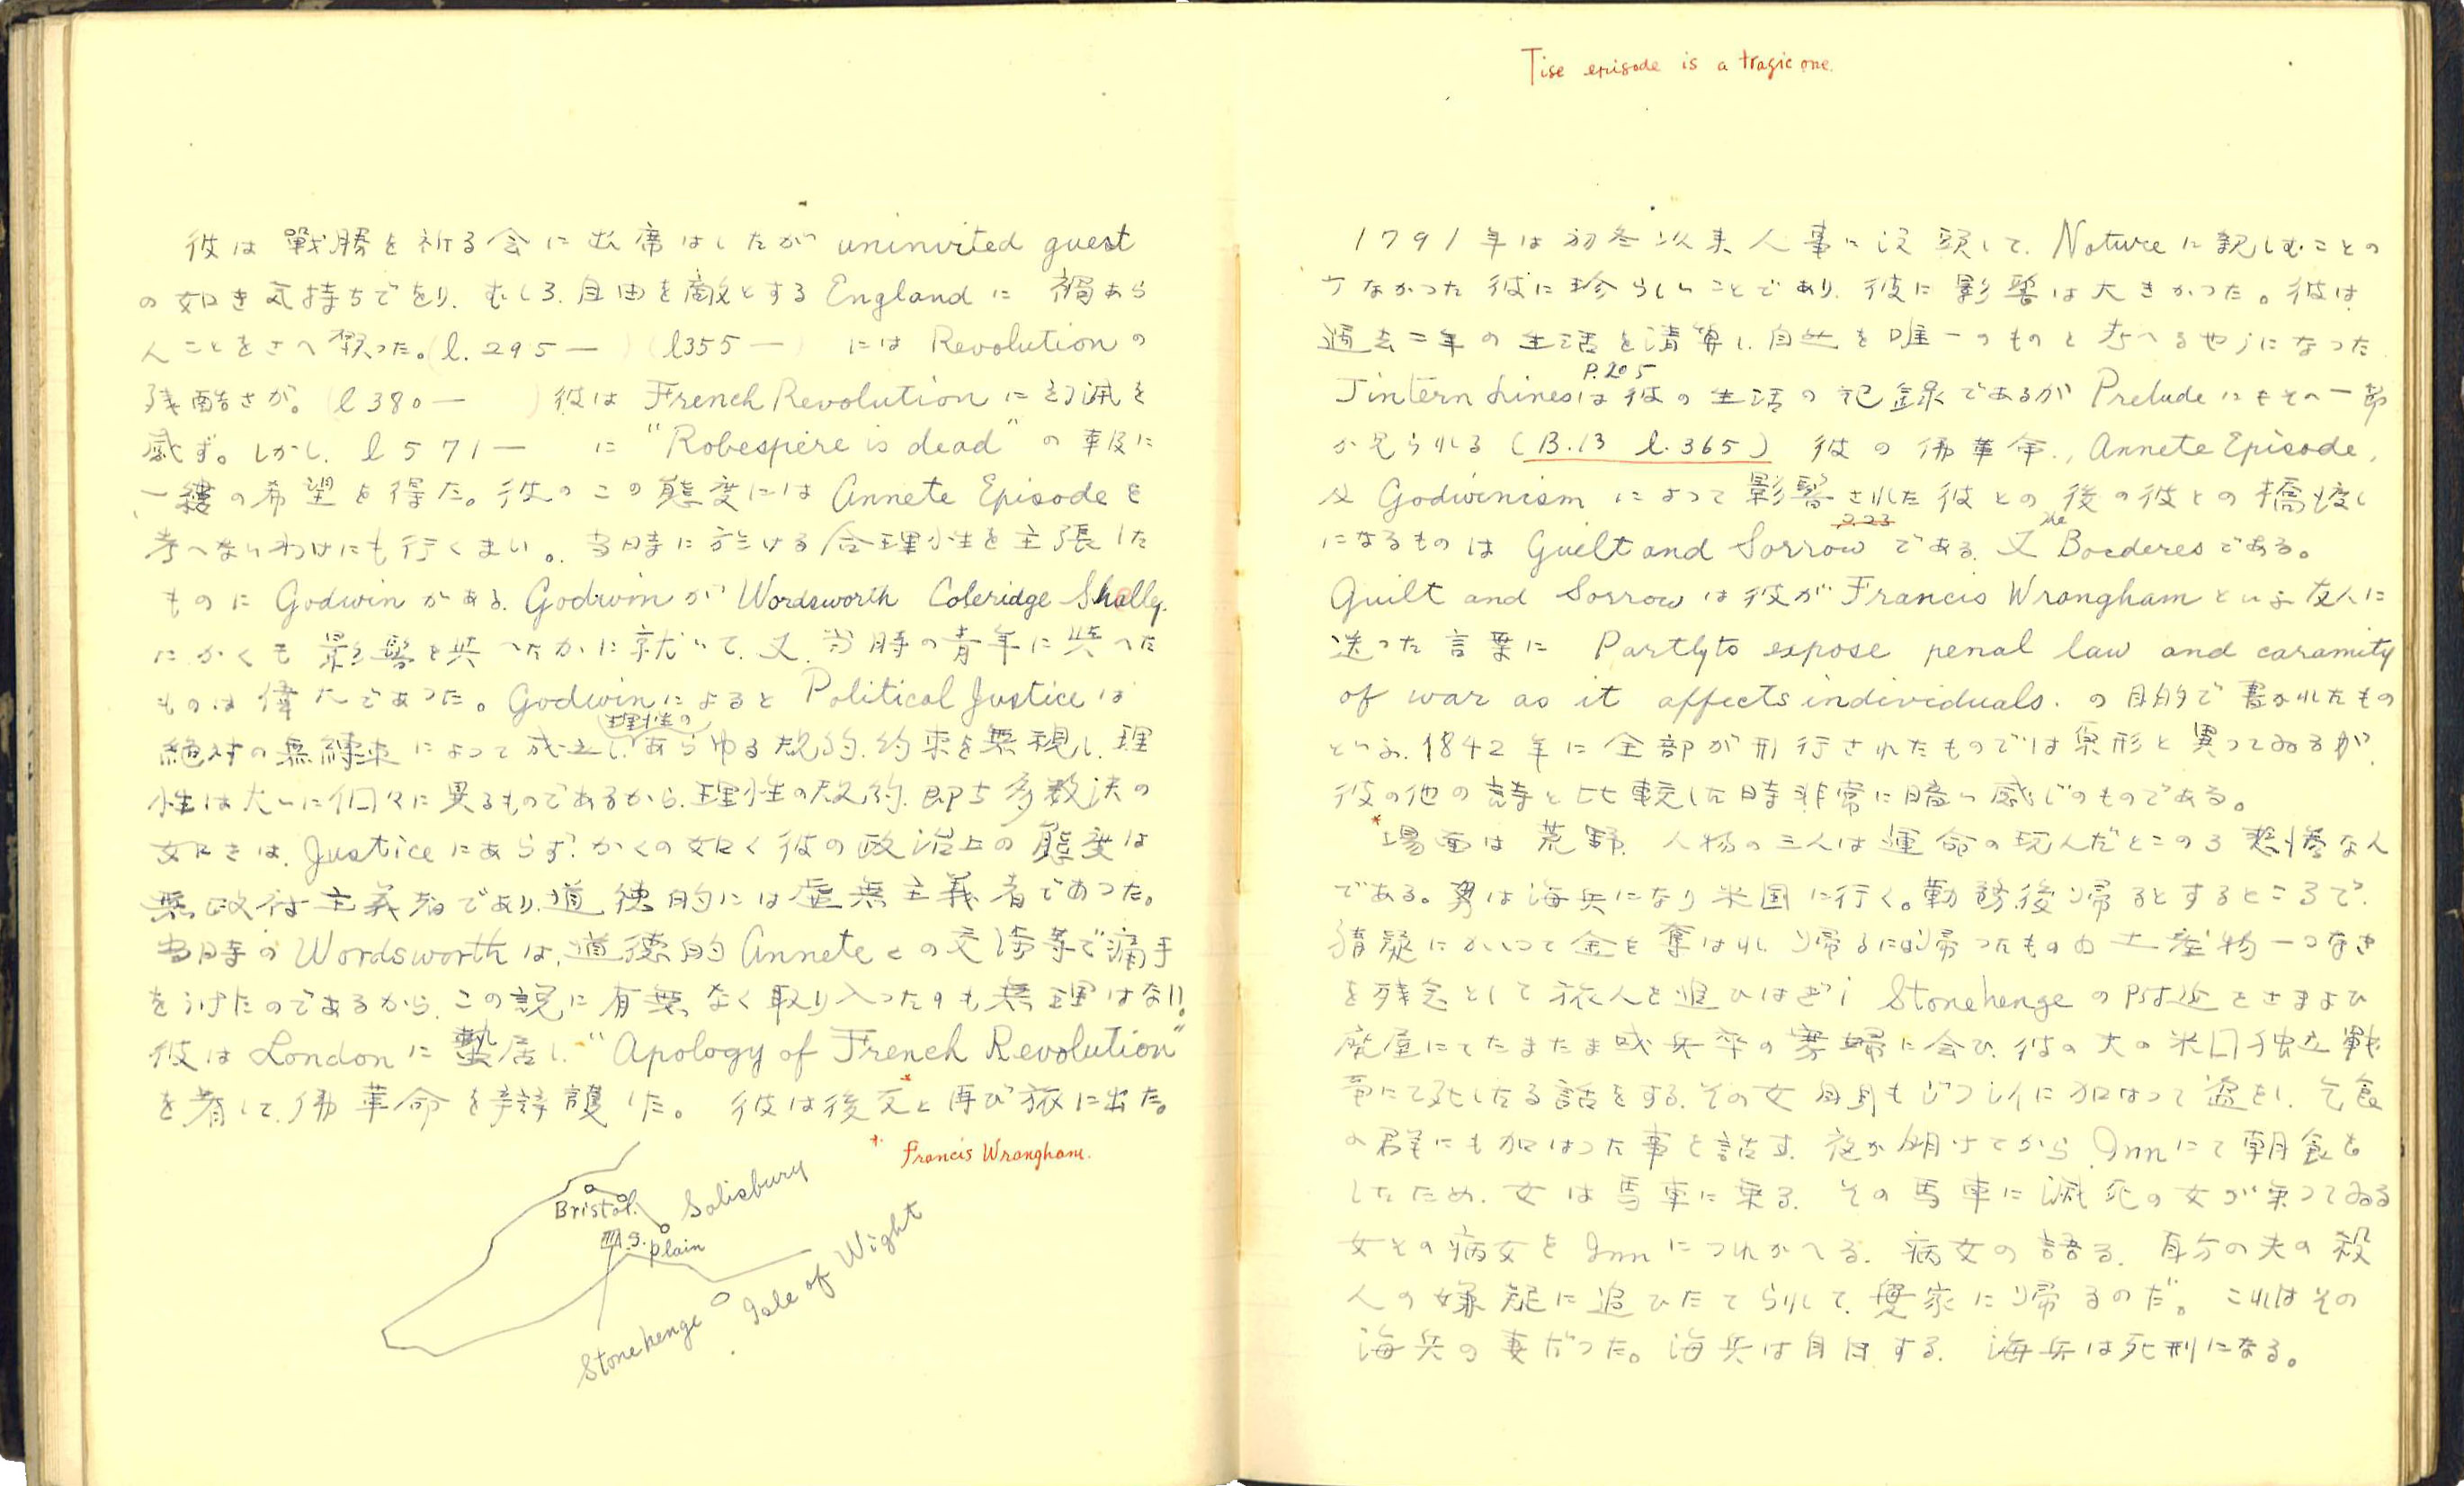 彼は戰勝を祈る会に出席はしたが uninvited guest
の如き気持ちでをり、むしろ、自由を敵とする England に 禍あら
んことをさへ願った。(l. 295 ― ) (l355 ― ) には Revolution の
残酷さが。(l 380 ― ) 彼は French Revolution に幻滅を
感ず。しかし、l 571 ― に "Robespiere is dead" の報に
一縷の希望を得た。彼のこの態度には Annete Episode を
考へないわけにも行くまい。当時に於ける合理性を主張した
ものに Godwin がある。Godwin が Wordsworth Coleridge Shelley.
にかくも影響を與へたかに就いて、又、当時の青年に與へた
ものは偉大であつた。Godwin によると Political Justice は
(理性の)
絶対の無縛束によって成立し、あらゆる規約、約束を無視し、理
性は大いに個々に異るものであるから、理性の規約、即ち多数決の
如きは、Justice にあらず。かくの如く彼の政治上の態度は
無政府主義者であり、道徳的には虚無主義者であつた。
当時の Wordsworth は、道徳的 Annete との交渉等で痛手
をうけたのであるから、この説に有無なく取り入つたのも無理はない。
彼は London に蟄居し、"Apology of French Revolution"
を著して、佛革命を辯護した。 彼は後友*と再び旅に出た。
* Francis Wrangham.
Bristol.
Salisbury
S. plain
Stonehenge
Isle of Wight
Tise episode is a tragic one.
1791年は初冬以来人事に没頭して、Nature に親しむことの
少なかつた彼に珍らしいことであり、彼に影響は大きかつた。彼は
過去二年の生活を清算し、自然を唯一のものと考へるやうになつた
P. 205
Tintern Lines は彼の生活の記録であるが Prelude にもその一節
が見られる (B.13 l. 365) 彼の佛革命、Annete Episode,
及 Godwinism によつて影響された彼との後の彼との橋渡し
223 the
になるものは Guilt and Sorrow である。又 Borderes である。
Guilt and Sorrow は彼が Francis Wrangham といふ友人に
送つた言葉に Partly to expose penal law and caramity
of war as it affects individuals. の目的で書かれたもの
といふ。1842年に全部が刊行されたものでは原形と異つてゐるが、
彼の他の詩と比較した時非常に暗い感じのものである。
*場面は荒野、人物の三人は運命の玩んだところの悲惨な人
である。男は海兵になり米国に行く。勤務後帰るとするところで、
猜疑にかゝつて金を奪はれ、帰るには帰つたものの土産物一つなき
を残念として旅人を追ひはぎし Stonehenge の附近をさまよひ
廃屋にてたまたま或兵卒の寡婦に会ひ、彼の夫の米国独立戦
爭にて死したる話をする。その女自身もジプシイに加はつて盗をし、乞食
の群にも加はつた事を話す。夜が明けてから Inn にて朝食を
したため、女は馬車に乗る。その馬車に瀕死の女が乗つてゐる
女その病女を Inn につれかへる。病女の語る、自分の夫の殺
人の嫌疑に追ひたてられて、実家に帰るのだ。これはその
海兵の妻だつた。海兵は自白する。海兵は死刑になる。